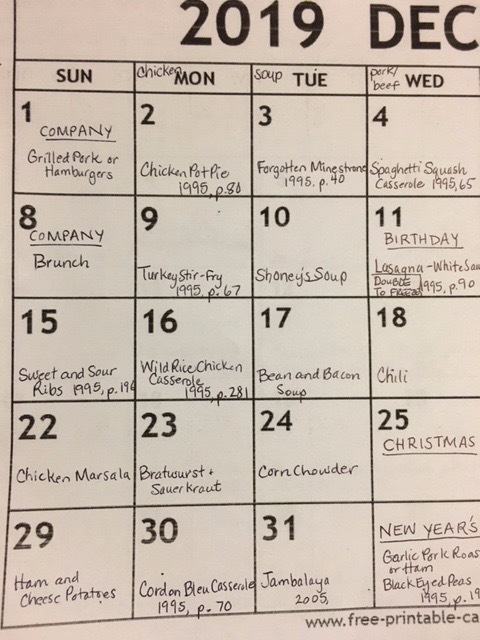 2019 DEC
SUN
chicken MON
soup TUE
pork/
beef WED
1
COMPANY
Grilled Pork or
Hamburgers
2
Chicken Pot Pie
1995, p. 80
3
Forgotten Minestrone
1995. p. 40
4
Spaghetti Squash
Casserole 1995, 65
8
COMPANY
Brunch
9
Turkey Stir-Fry
1995, p. 67
10
Shoney's Soup
11
BIRTHDAY
Lasagna - White Sau
DOUBLE
TO FREEZE 1995, p. 90
15
Sweet and Sour
Ribs 1995, p. 196
16
Wild Rice Chicken
Casserole
1995, p. 281
17
Bean and Bacon
Soup
18
Chili
22
Chicken Marsala
23
Bratwurst +
Sauerkraut
24
Corn Chowder
25
CHRISTMAS
29
Ham and
Cheese Potatoes
30
Cordon Bleu Casserole
1995, p. 70
31
Jambalaya
2005,
NEW YEAR'S
Garlic Pork Roas
or Ham
Black Eyed Peas
1995, p. 19
www.free-printable-ca